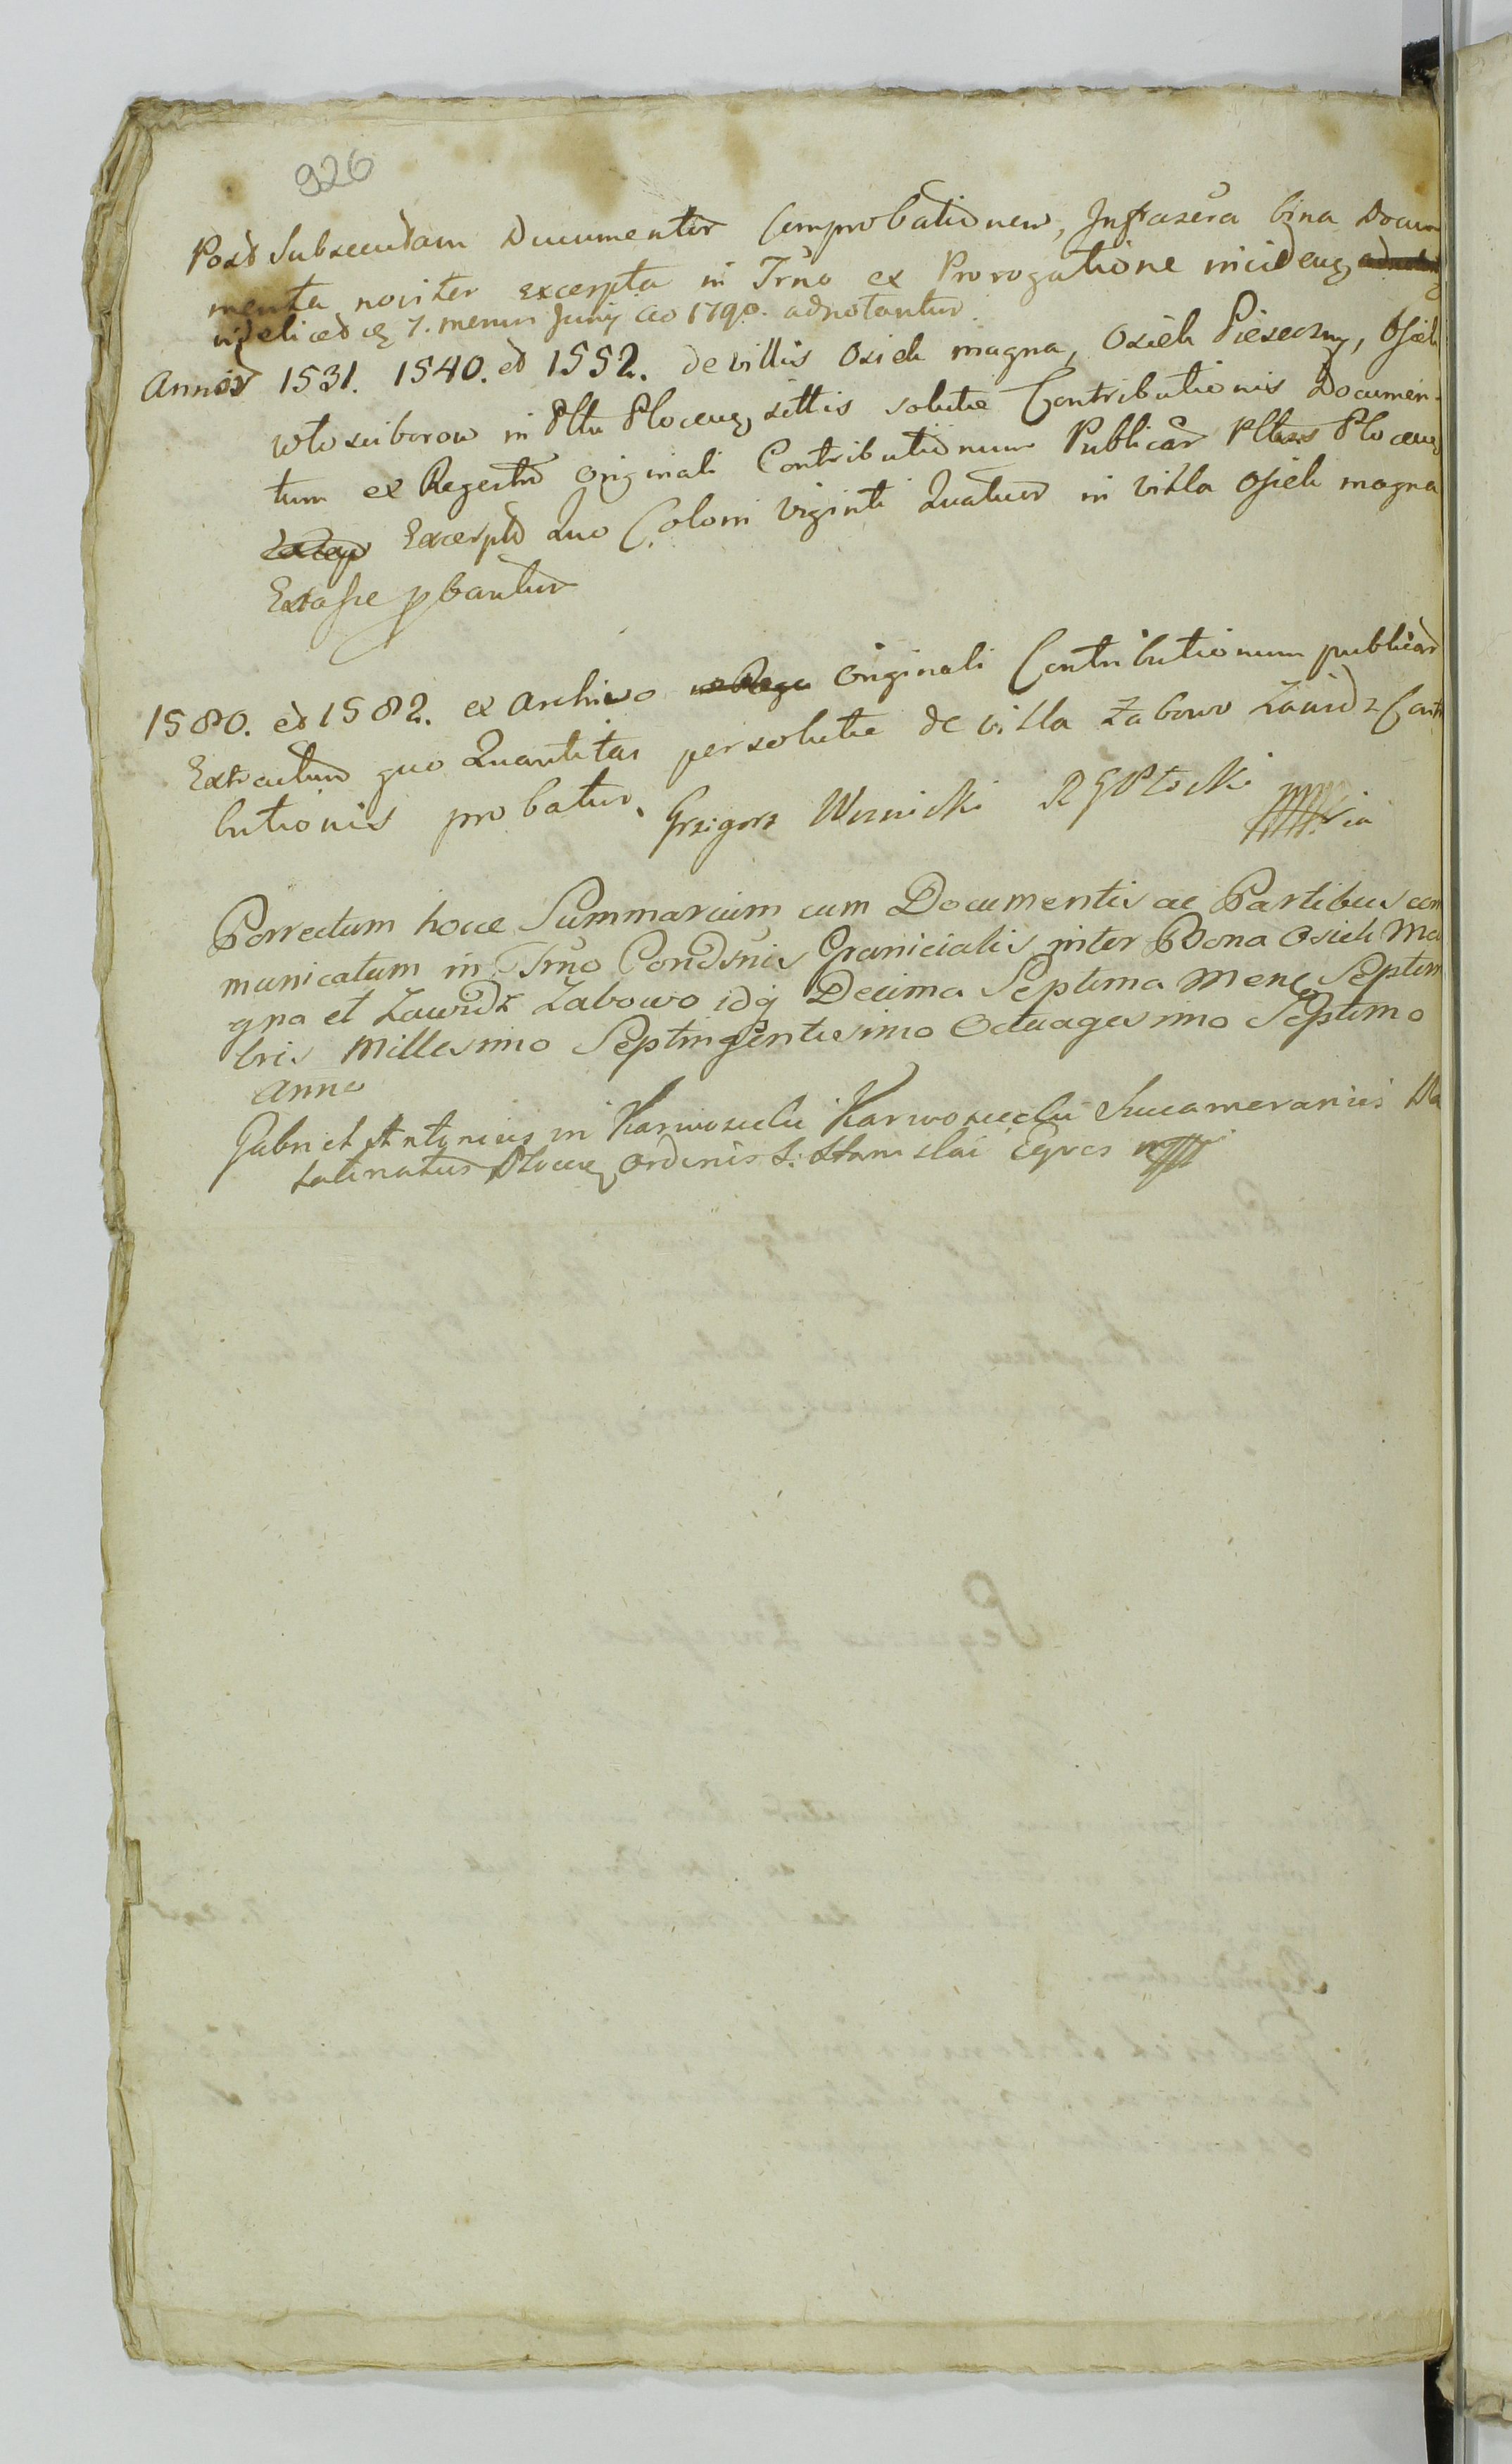 926
Post Subsecutam Documentor Comprobationem, Infrascra bina Docu
menta noviter excerpta in Trno ex Prorogatione inciden
videliced 7. mensis Junij ao 1790. adnotantur.
Annor 1531. 1540. et 1552. de villis Osiek magna, Osiek Piseczny, Osiek
Wlosciborow in Pltu Plocen sittis solutæ Contributionis Documen-
tum ex Regestro Originali Contributionum Publicar Pltus Plocen
Excerptu Quo Coloni Viginti Quatuor in Villa Osiek magna
Extasse pbantur
1580. et 1582. ex Archivo Originali Contributionum publicar
Extractum quo Quantitas persolutæ de villa Zabowo Zawidz Cont
butionis probatur. Grzigorz Woznicki R G Płocki
Porrectum hocce Summarium cum Documentis ac Partibus com
municatum in Trno Condsnis Granicialis inter Bona Osiek Ma
gna et Zawidz Zabowo idq Decima Septima Mens Septem
bris Millesimo Septingentesimo Octuagesimo Septimo
Anno
Gabriel Antonius in Karwosieki Karwosiecki Succamerarius Pa
latinatus Plocen Ordinis S. Stanislai Eqves